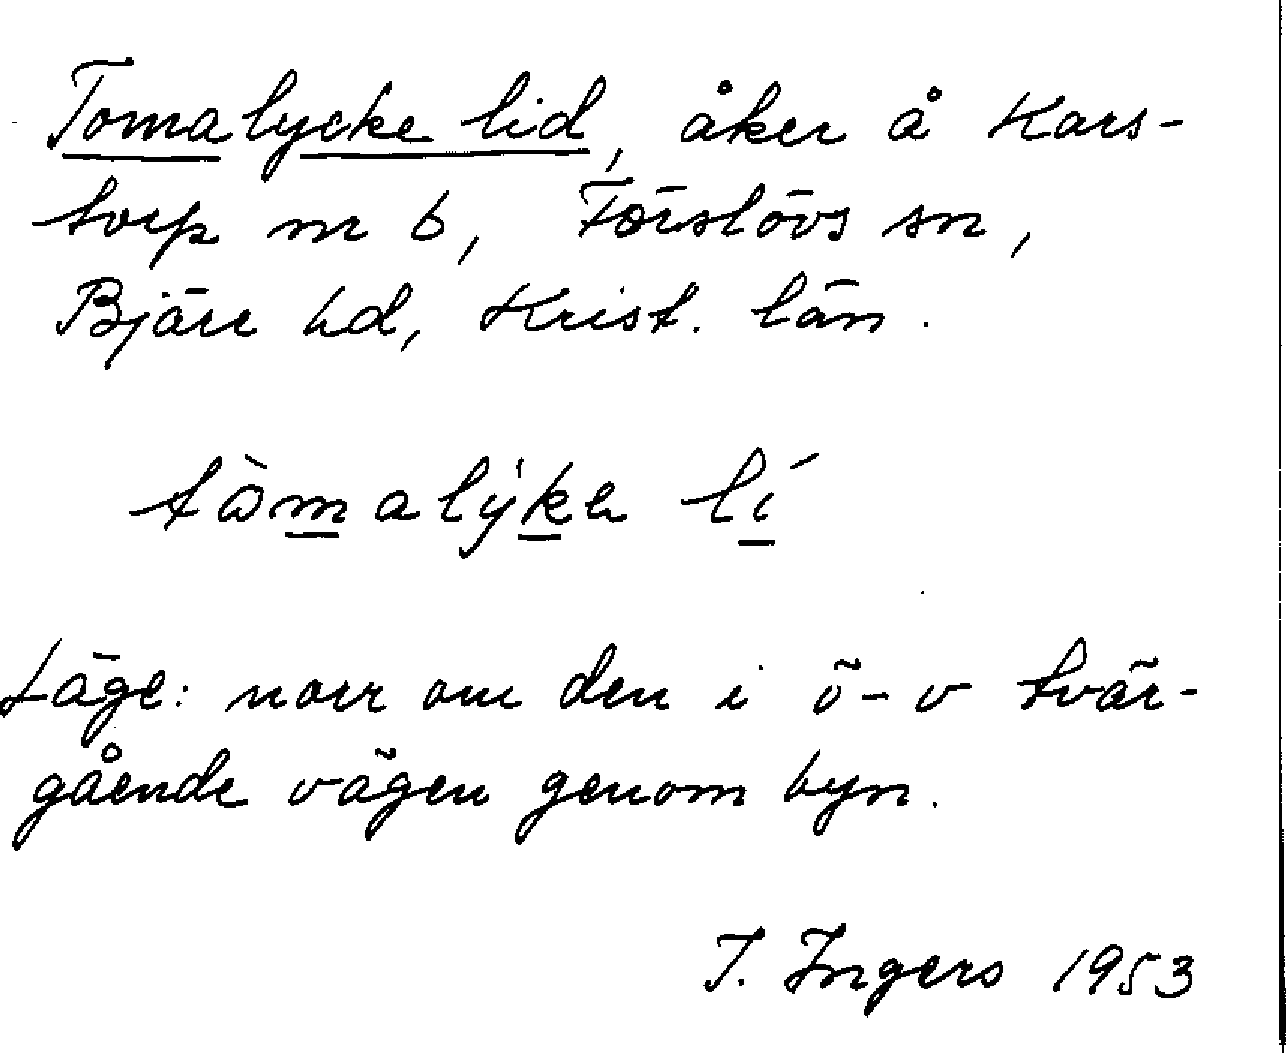 Tomalycke lid, åker å Kars-
torp nr 6, Förslövs sn,
Bjäre hd, Krist. län.
tòmalýke lí
Läge: norr om den i ö-v tvär-
gående vägen genom byn.
I. Ingers 1953